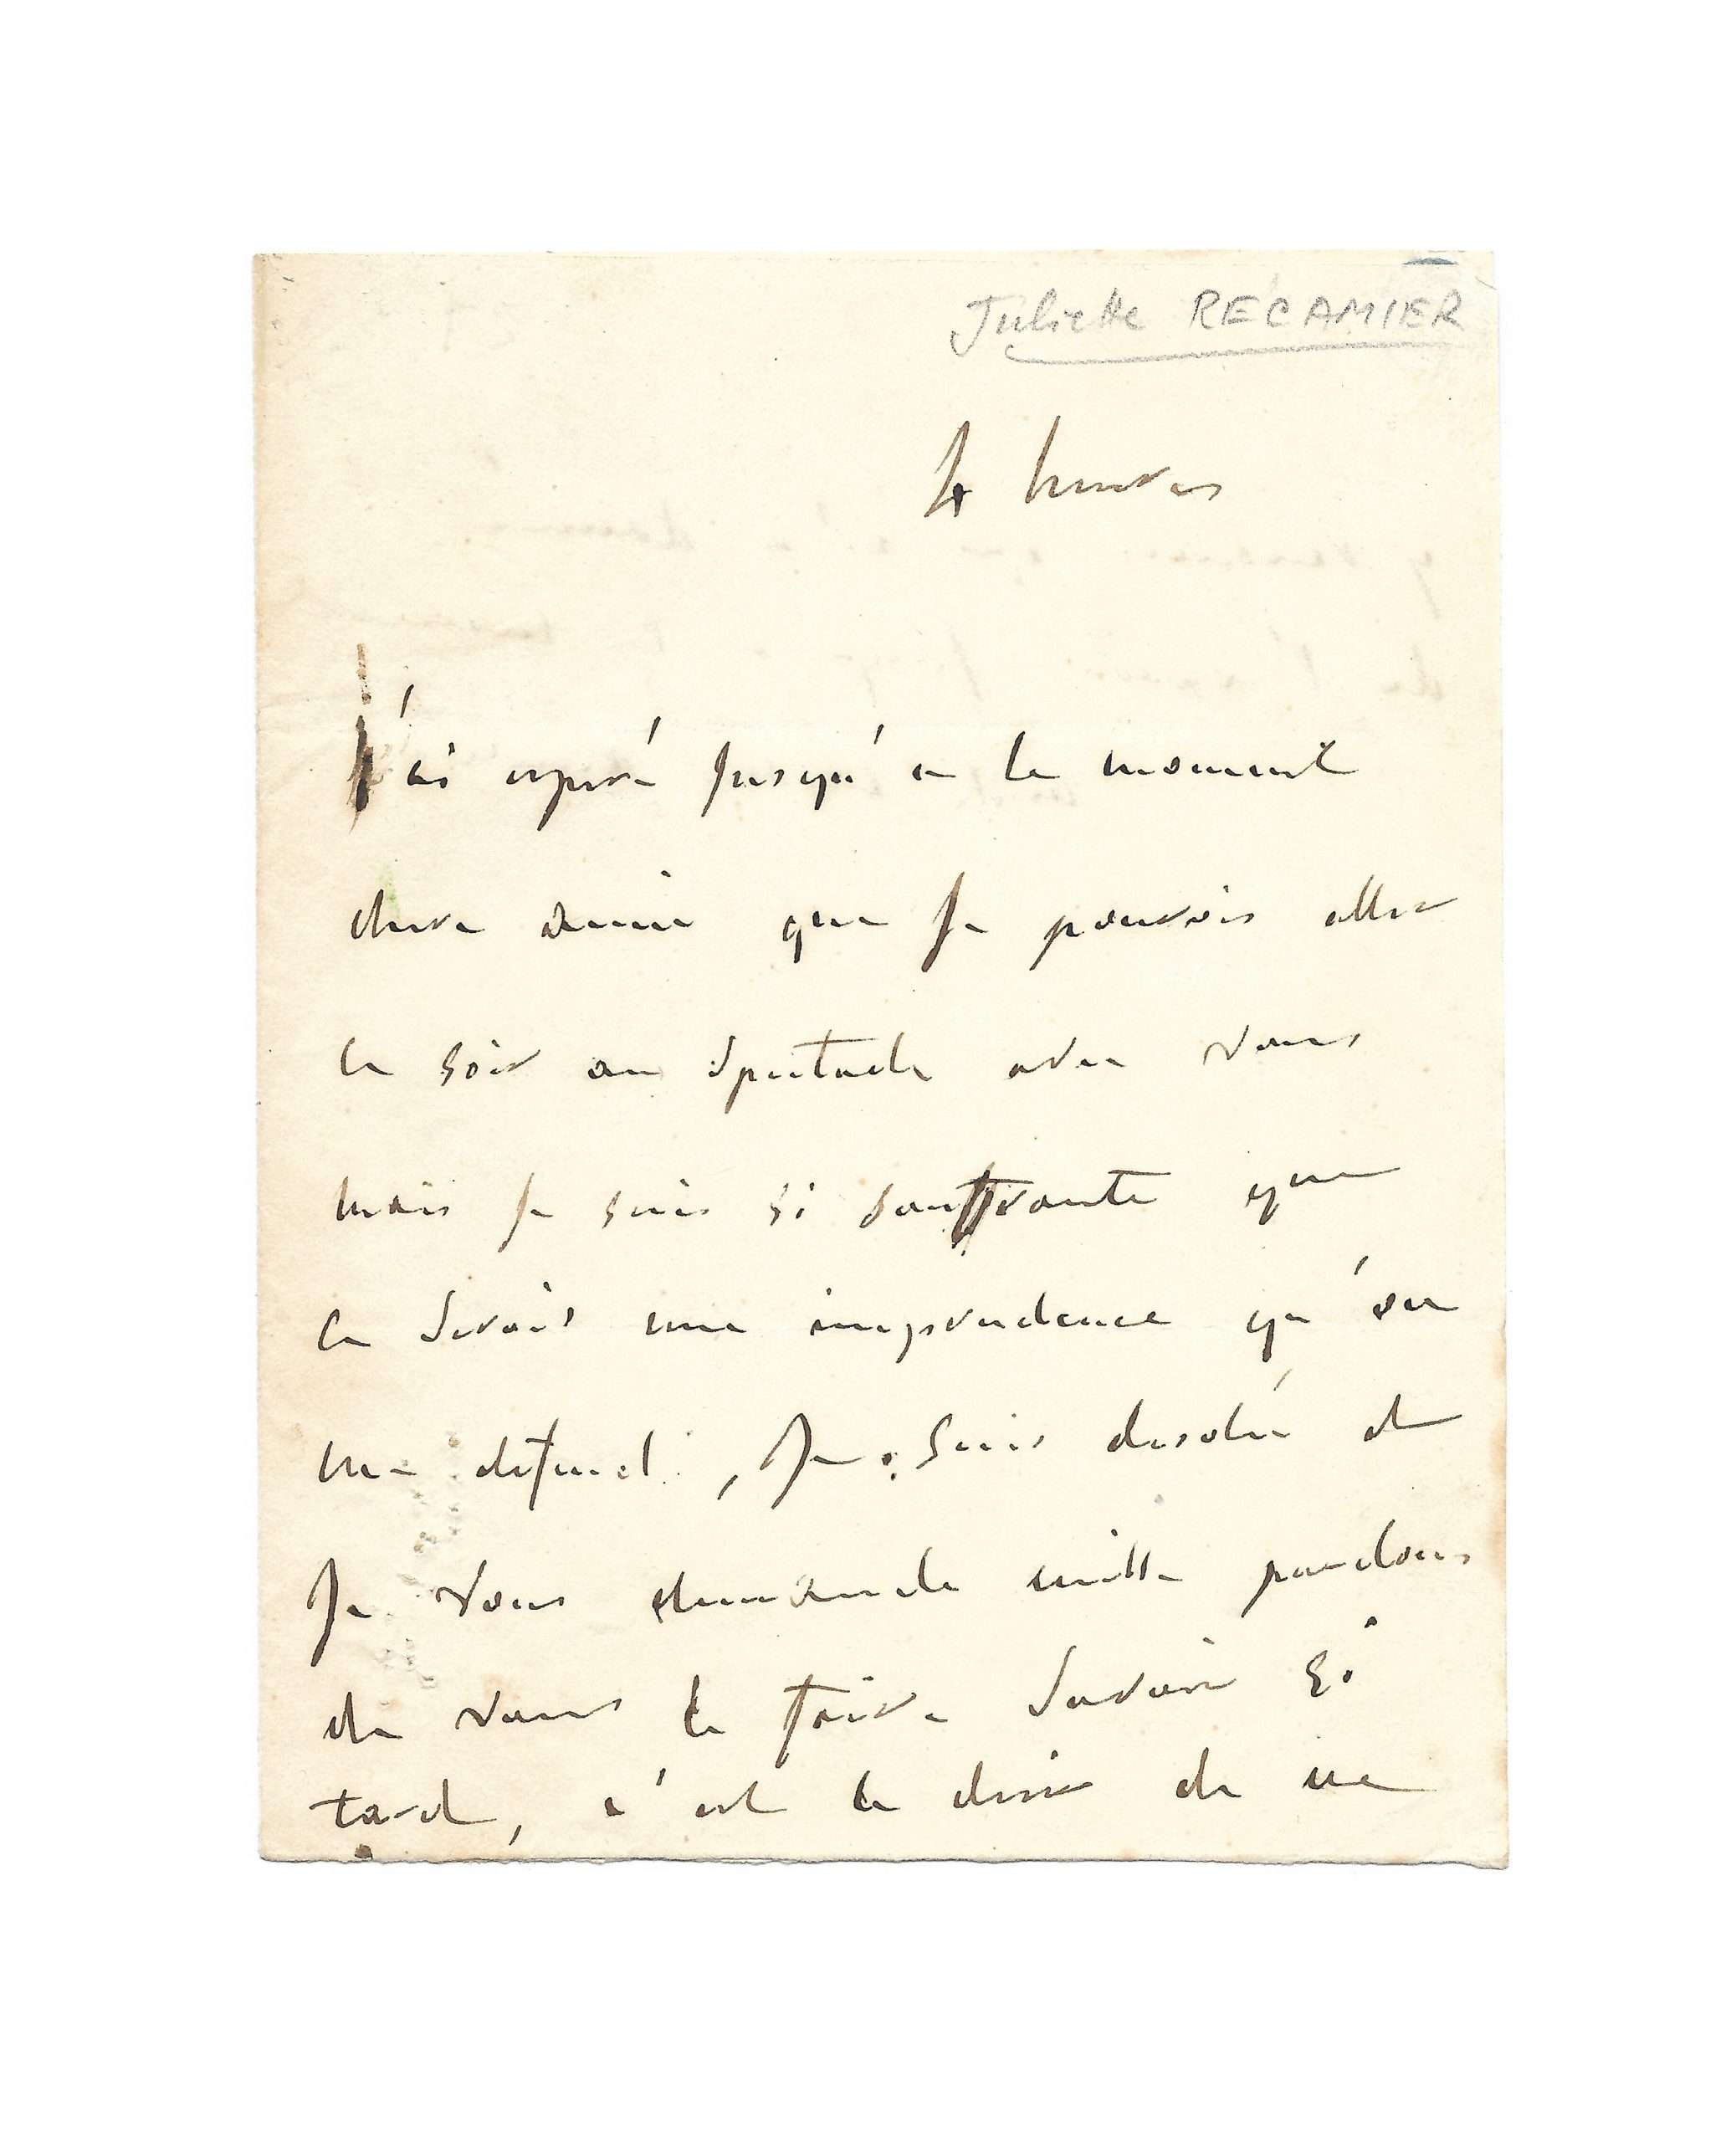 Juliette RECAMIER
4 heures
J'ai espéré jusqu'a ce moment
chere amie que je pourrois aller
ce soir au spectacle avec vous
mais je suis si souffrante que
ce seroit une imprudence qu'on
me defend, Je suis desolée et
Je vous demande mille pardons
de vous le faire savoir si
tard, c'est le desir de ne